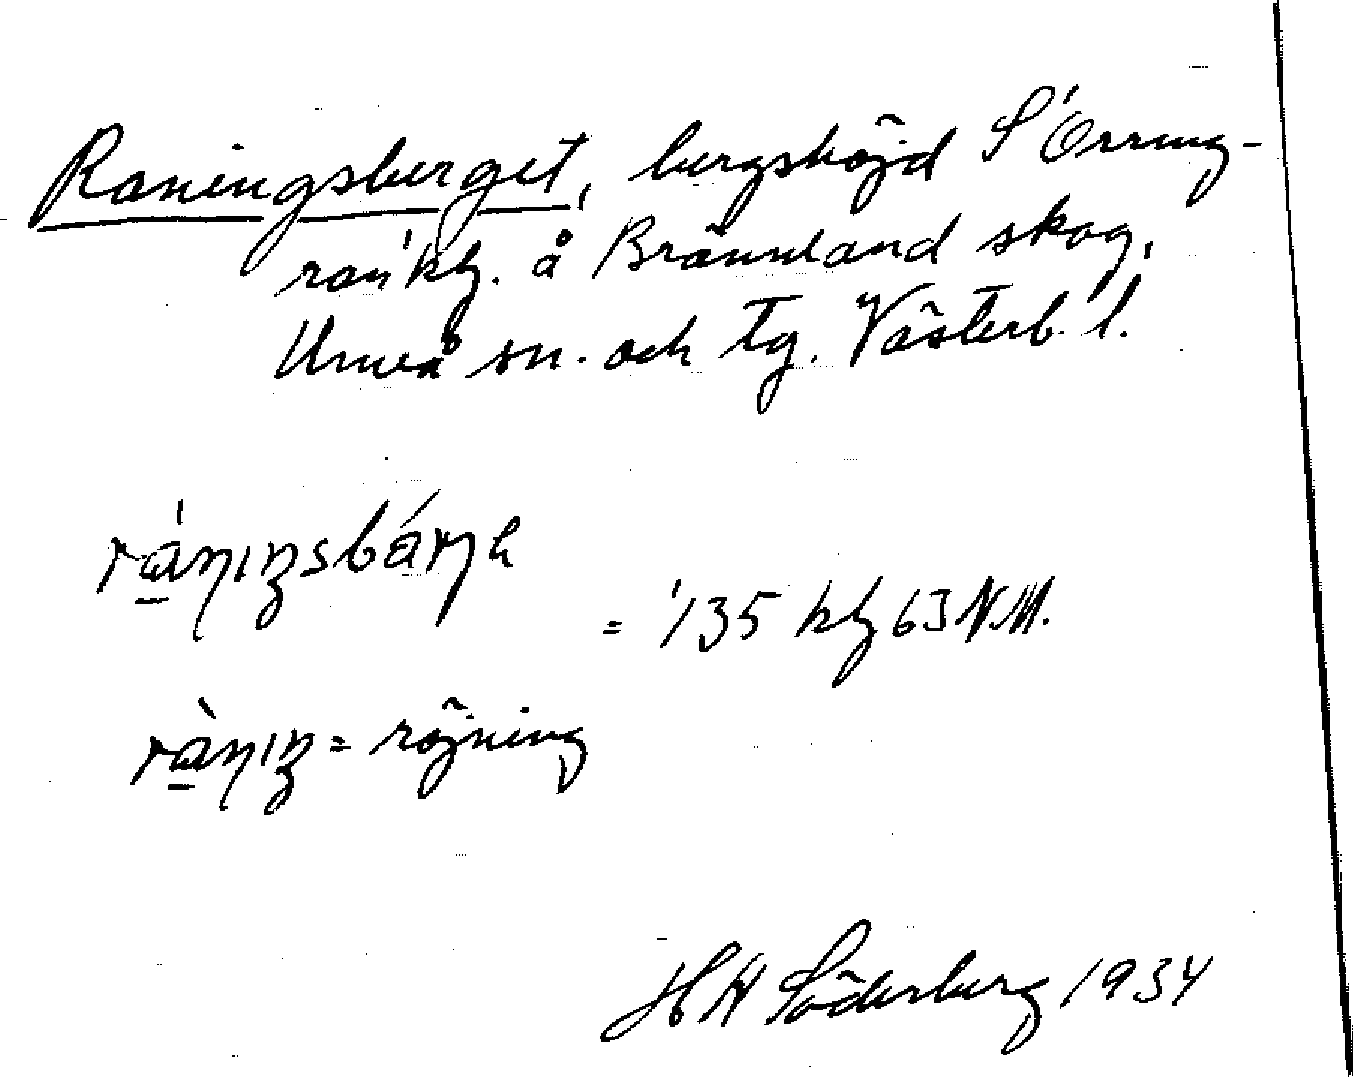 Raningsberget, bergshöjd S Orrmyr-
ran kh. å Brännland skog,
Umeå sn. och tg. Västerb. l.
ràṇıŋsbárjɐ
= 135 kh 63 NM.
ràṇıŋ = röjning
H W Söderberg 1934